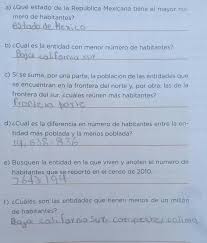 a) ¿Qué estado de la República Mexicana tiene el mayor nú-
mero de habitantes?
estado de Mexico
b) ¿Cuál es la entidad con menor número de habitantes?
Baja california sur
c) Si se suma, por una parte, la población de las entidades que
se encuentran en la frontera del norte y, por otra, las de la
frontera del sur, ¿cuáles reúnen más habitantes?
frontera
d) ¿Cuál es la diferencia en número de habitantes entre la en-
tidad más poblada y la menos poblada?
14,538-836
e) Busquen la entidad en la que viven y anoten el número de
habitantes que se reportó en el censo de 2010.
7643194
f) ¿Cuáles son las entidades que tienen menos de un millón
de habitantes?
Baja california Sur campeche colima